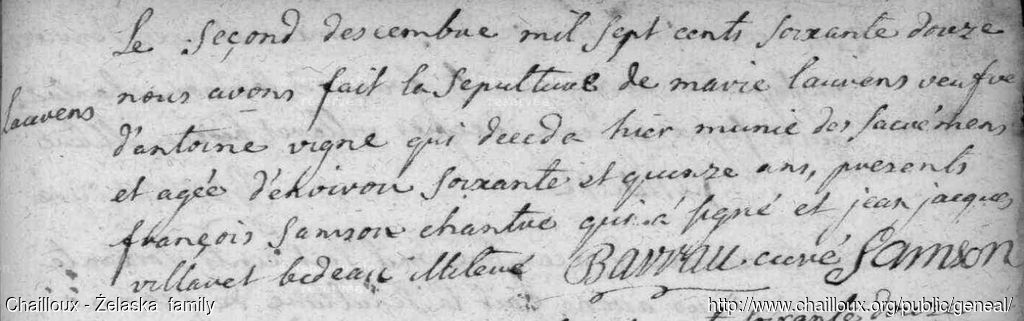 Le second descembre mil sept cents soixante douze
nous avons fait la sepulture de marie lauvens veufve
lauvens
d'antoine vigne qui deceda hier munie des sacréments
et agée d'énviron soixante et quinze ans, presents
françois samson chantre qui a signé et jean jacques
villaret bedeau illiteré Barrau curé Samson
Chailloux - Żelaska family
http://www.chailloux.org/public/geneal/